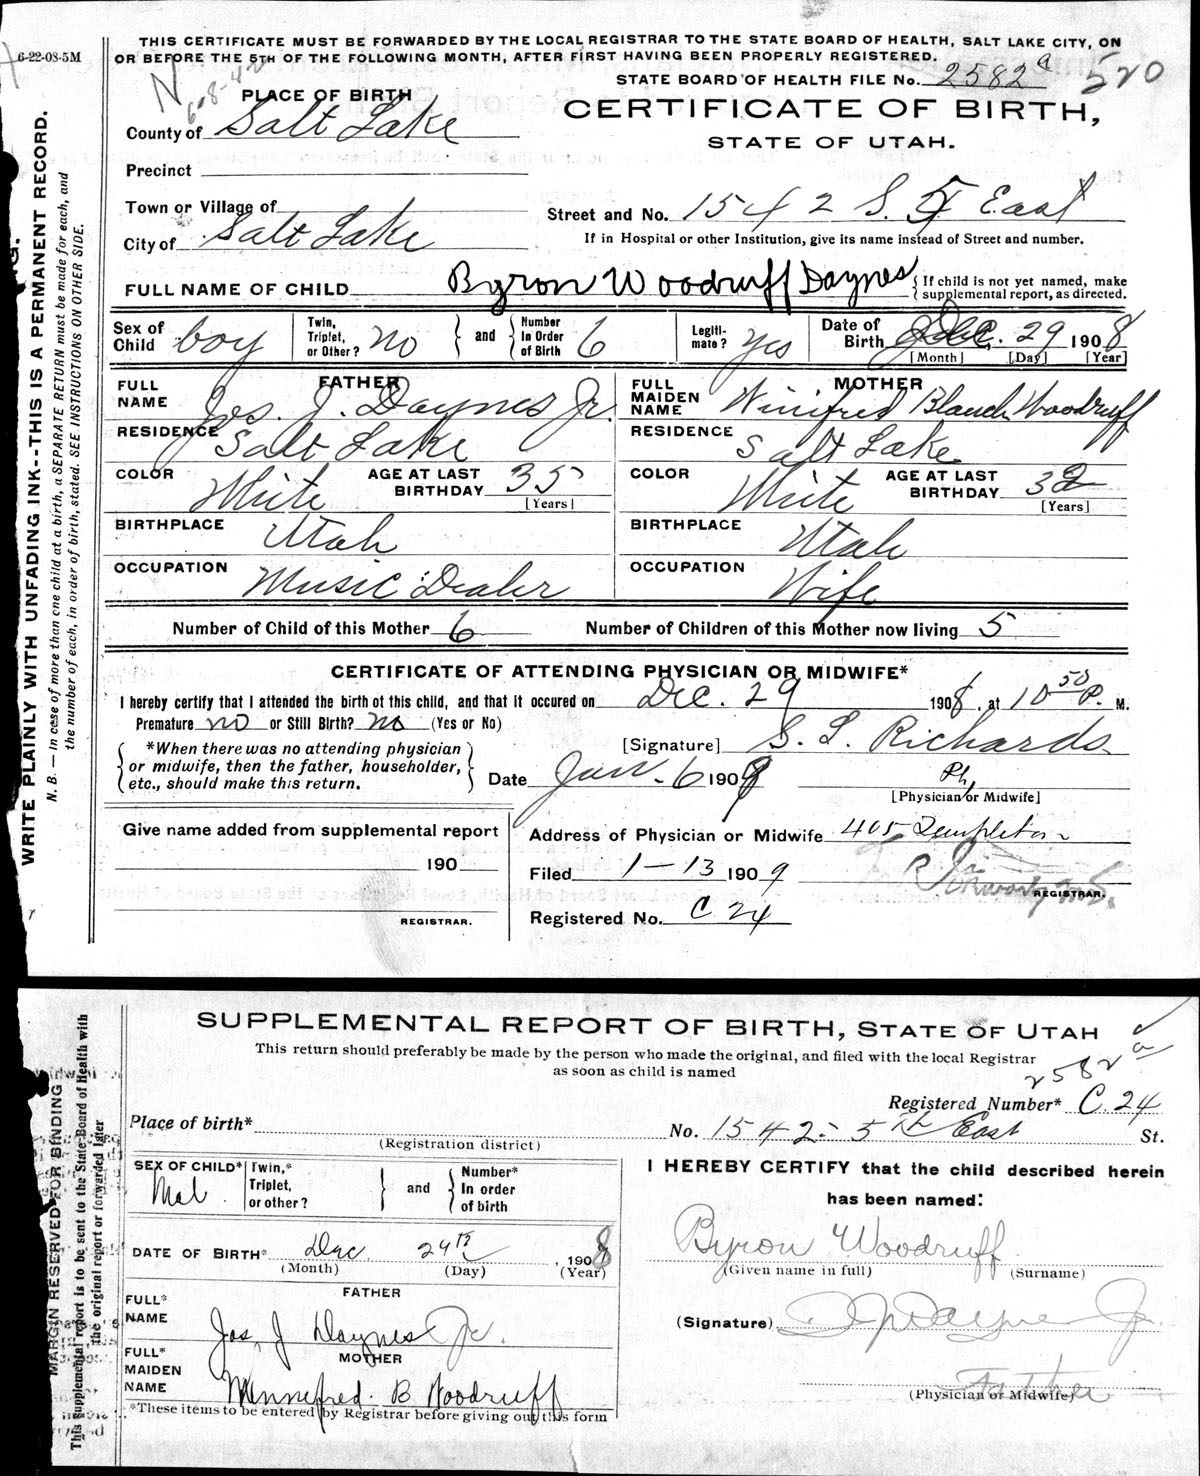 6-22-08-5M
THIS CERTIFICATE MUST BE FORWARDED BY THE LOCAL REGISTRAR TO THE STATE BOARD OF HEALTH, SALT LAKE CITY, ON
OR BEFORE THE 5TH OF THE FOLLOWING MONTH, AFTER FIRST HAVING BEEN PROPERLY REGISTERED.
STATE BOARD OF HEALTH FILE No. 2582 a 520
N 608-42
PLACE OF BIRTH
CERTIFICATE OF BIRTH,
STATE OF UTAH.
County of Salt Lake
Precinct
Town or Village of
City of Salt Lake
Street and No. 1542 S. 5 East
If in Hospital or other Institution, give its name instead of Street and number.
FULL NAME OF CHILD Byron Woodruff Daynes
{ If child is not yet named, make supplemental report, as directed.
Sex of Child boy
Twin, Triplet, or Other? no } and { Number In Order of Birth 6
Legiti- mate? yes
Date of Birth Dec. 29 1908
[Month] [Day] [Year]
FATHER
FULL NAME Jos. J. Daynes Jr.
RESIDENCE Salt Lake
COLOR White AGE AT LAST BIRTHDAY 35
[Years]
BIRTHPLACE Utah
OCCUPATION Music Dealer
MOTHER
FULL MAIDEN NAME Winifred Blanch Woodruff
RESIDENCE Salt Lake
COLOR White AGE AT LAST BIRTHDAY 32
[Years]
BIRTHPLACE Utah
OCCUPATION Wife
Number of Child of this Mother 6 Number of Children of this Mother now living 5
CERTIFICATE OF ATTENDING PHYSICIAN OR MIDWIFE*
I hereby certify that I attended the birth of this child, and that it occured on Dec. 29 1908, at 10 50 P. M.
Premature no or Still Birth? no (Yes or No)
{ *When there was no attending physician or midwife, then the father, householder, etc., should make this return. }
[Signature] S. L. Richards
Date Jan. 6 1909 Ph.
[Physician or Midwife]
Give name added from supplemental report
190
REGISTRAR.
Address of Physician or Midwife 405 Templeton
Filed 1-13 1909
REGISTRAR.
Registered No. C 24
WRITE PLAINLY WITH UNFADING INK--THIS IS A PERMANENT RECORD.
N. B. — In case of more than one child at a birth, a SEPARATE RETURN must be made for each, and
the number of each, in order of birth, stated. SEE INSTRUCTIONS ON OTHER SIDE.
SUPPLEMENTAL REPORT OF BIRTH, STATE OF UTAH
This return should preferably be made by the person who made the original, and filed with the local Registrar
as soon as child is named
2582 a
Registered Number* C. 24
Place of birth* No. 1542- 5th East St.
(Registration district)
SEX OF CHILD* Mal.
Twin,* Triplet, or other? } and { Number* In order of birth
DATE OF BIRTH* Dec. 24th, 1908
(Month) (Day) (Year)
FATHER
FULL* NAME Jos. J Daynes Jr.
MOTHER
FULL* MAIDEN NAME Winnefred. B Woodruff
*These items to be entered by Registrar before giving out this form
I HEREBY CERTIFY that the child described herein
has been named:
Byron Woodruff
(Given name in full) (Surname)
(Signature) J J Daynes Jr.
Father
(Physician or Midwife)
MARGIN RESERVED FOR BINDING
This supplemental report is to be sent to the State Board of Health with
the original report or forwarded later